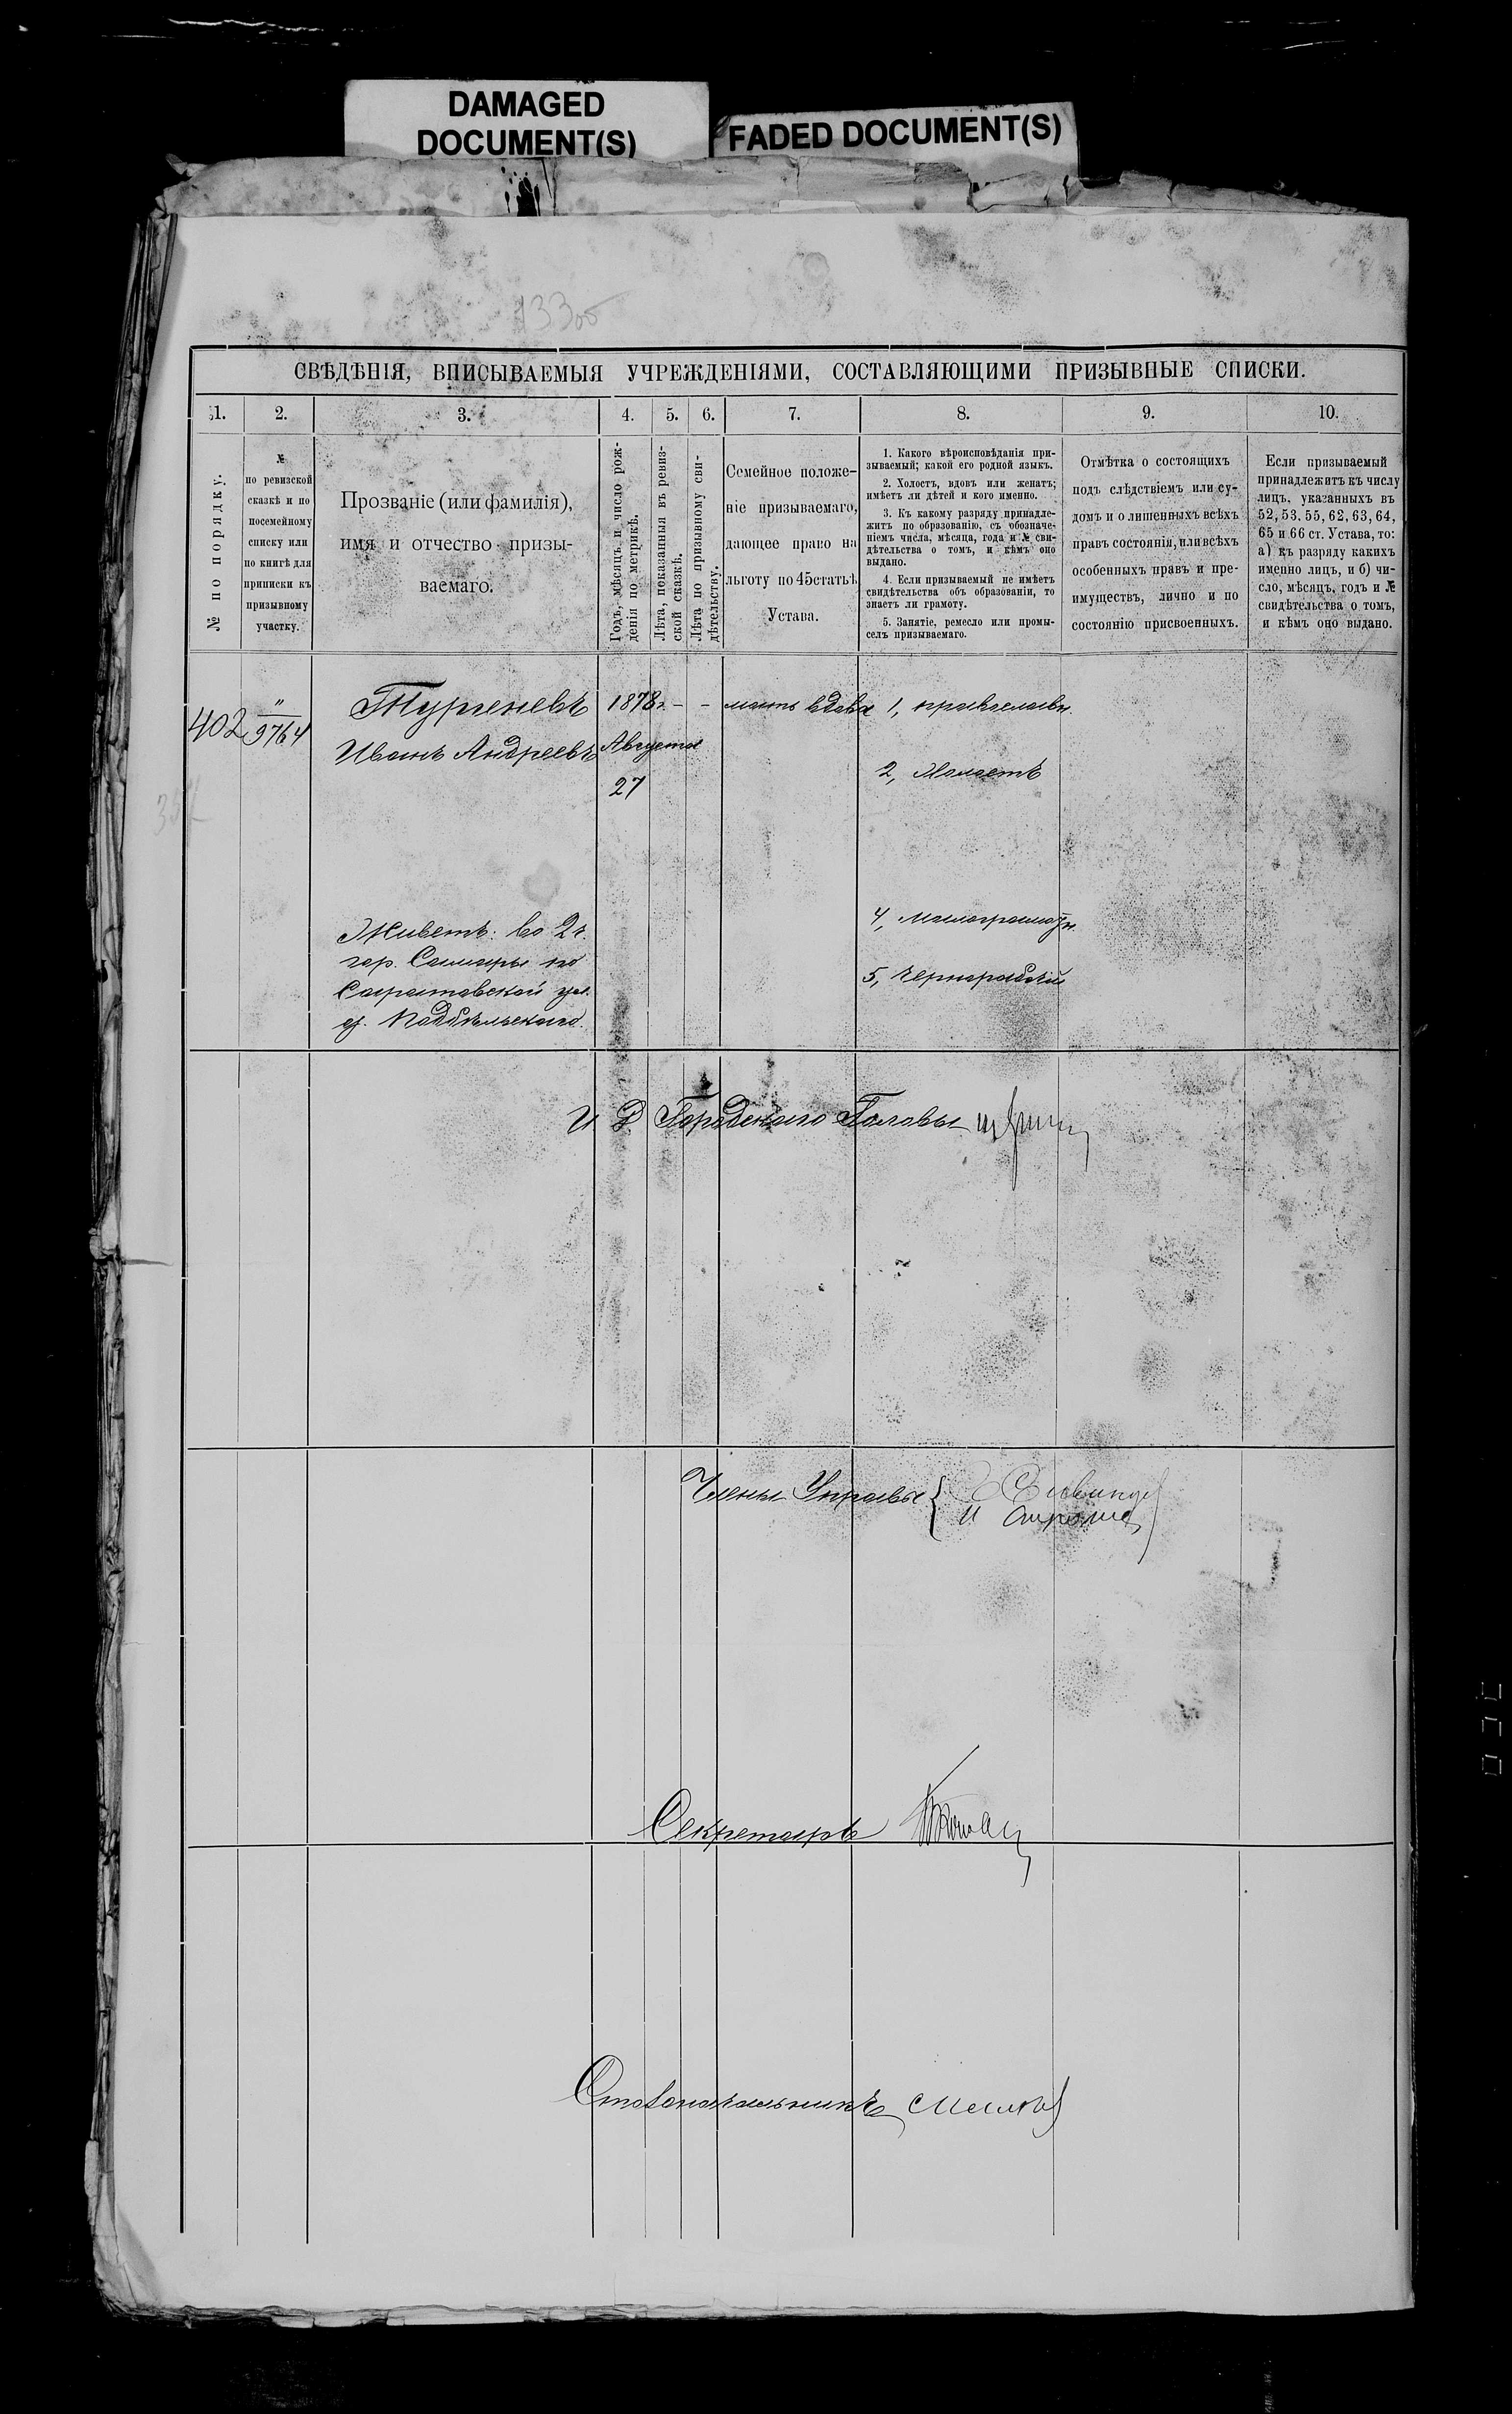 DAMAGED
DOCUMENT(S)
FADED DOCUMENT(S)
133об
СВѢДѢНІЯ, ВПИСЫВАЕМЫЯ УЧРЕЖДЕНІЯМИ, СОСТАВЛЯЮЩИМИ ПРИЗЫВНЫЕ СПИСКИ.
1. 2. 3. 4. 5. 6. 7. 8. 9. 10.
№ по порядку.
№
по ревизской
сказкѣ и по
посемейному
списку или
по книгѣ для
приписки къ
призывному
участку.
Прозваніе (или фамилія),
имя и отчество призы-
ваемаго.
Годъ, мѣсяцъ и число рож-
денія по метрикѣ.
Лѣта, показанныя въ ревиз-
ской сказкѣ.
Лѣта по призывному сви-
дѣтельству.
Семейное положе-
ніе призываемаго,
дающее право на
льготу по 45 статьѣ
Устава.
1. Какого вѣроисповѣданія при-
зываемый; какой его родной языкъ.
2. Холостъ, вдовъ или женатъ;
имѣетъ ли дѣтей и кого именно.
3. Къ какому разряду принадле-
житъ по образованію, съ обозначе-
ніемъ числа, мѣсяца, года и № сви-
дѣтельства о томъ, и кѣмъ оно
выдано.
4. Если призываемый не имѣетъ
свидѣтельства объ образованіи, то
знаетъ ли грамоту.
5. Занятіе, ремесло или промы-
селъ призываемаго.
Отмѣтка о состоящихъ
подъ слѣдствіемъ или су-
домъ и о лишенныхъ всѣхъ
правъ состоянія, или всѣхъ
особенныхъ правъ и пре-
имуществъ, лично и по
состоянію присвоенныхъ.
Если призываемый
принадлежитъ къ числу
лицъ, указанныхъ въ
52, 53, 55, 62, 63, 64,
65 и 66 ст. Устава, то:
а) къ разряду какихъ
именно лицъ, и б) чи-
сло, мѣсяцъ, годъ и №
свидѣтельства о томъ,
и кѣмъ оно выдано.
402 "/9764 Тургеневъ 1878г. - - мать вдова 1, православн.
Иванъ Андреевъ Августа
2, Холостъ
27
4, малограмотн.
Живетъ: во 2 ч.
гор. Самары по
5, чернорабочій
Саратовской ул.
д. Поддѣльскаго.
И Д Городскаго Головы
Члены Управы {
Секретарь
Столоначальникъ